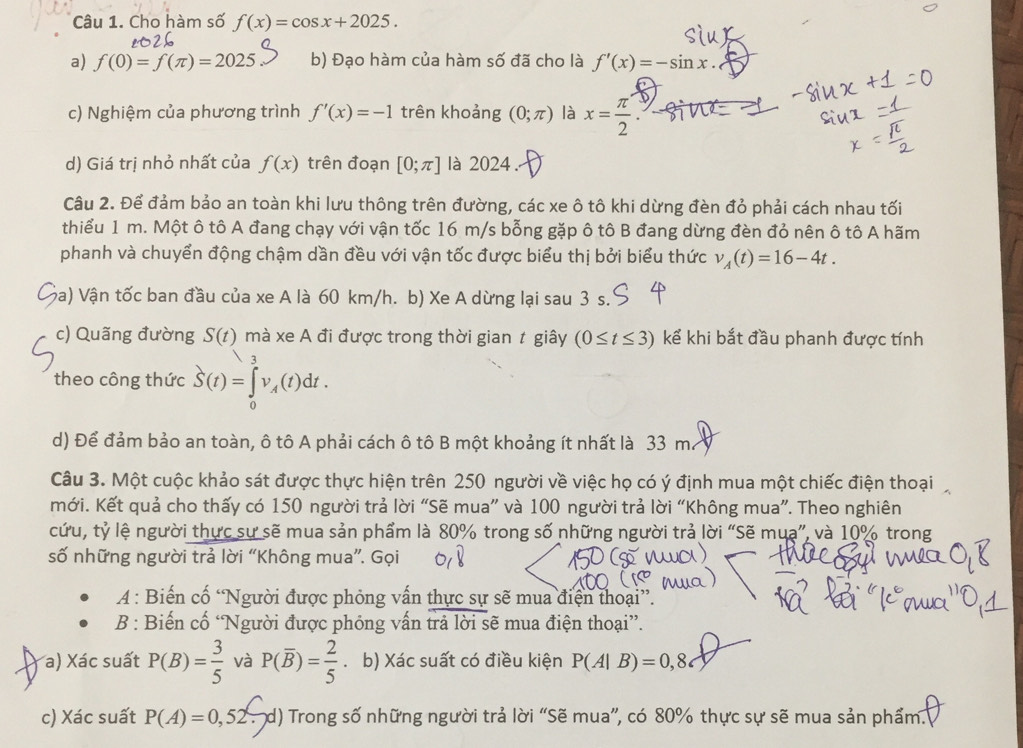 Câu 1. Cho hàm số f(x) = cos x + 2025.
2026
sinx
a) f(0) = f(π) = 2025. S b) Đạo hàm của hàm số đã cho là f'(x) = −sin x. Đ
-sinx +1 =0
c) Nghiệm của phương trình f'(x) = −1 trên khoảng (0;π) là x = π/2. Đ
sinx = 1
sinx = 1
x = π/2
d) Giá trị nhỏ nhất của f(x) trên đoạn [0;π] là 2024. Đ
Câu 2. Để đảm bảo an toàn khi lưu thông trên đường, các xe ô tô khi dừng đèn đỏ phải cách nhau tối
thiểu 1 m. Một ô tô A đang chạy với vận tốc 16 m/s bỗng gặp ô tô B đang dừng đèn đỏ nên ô tô A hãm
phanh và chuyển động chậm dần đều với vận tốc được biểu thị bởi biểu thức v_A(t) = 16 − 4t.
S a) Vận tốc ban đầu của xe A là 60 km/h. b) Xe A dừng lại sau 3 s. S 4
S c) Quãng đường S(t) mà xe A đi được trong thời gian t giây (0 ≤ t ≤ 3) kể khi bắt đầu phanh được tính
theo công thức S(t) = ∫₀³ v_A(t)dt.
d) Để đảm bảo an toàn, ô tô A phải cách ô tô B một khoảng ít nhất là 33 m. Đ
Câu 3. Một cuộc khảo sát được thực hiện trên 250 người về việc họ có ý định mua một chiếc điện thoại
mới. Kết quả cho thấy có 150 người trả lời “Sẽ mua” và 100 người trả lời “Không mua”. Theo nghiên
cứu, tỷ lệ người thực sự sẽ mua sản phẩm là 80% trong số những người trả lời “Sẽ mua”, và 10% trong
số những người trả lời “Không mua”. Gọi
0,8
150 (sẽ mua)
100 (ko mua)
thực sự mua 0,8
trả lời “ko mua” 0,1
• A: Biến cố “Người được phỏng vấn thực sự sẽ mua điện thoại”.
• B: Biến cố “Người được phỏng vấn trả lời sẽ mua điện thoại”.
Đ a) Xác suất P(B) = 3/5 và P(B̄) = 2/5. b) Xác suất có điều kiện P(A| B) = 0,8. Đ
c) Xác suất P(A) = 0,52. S d) Trong số những người trả lời “Sẽ mua”, có 80% thực sự sẽ mua sản phẩm. Đ